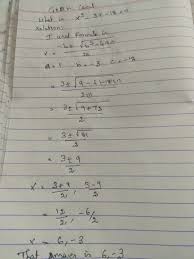 What is x² - 3x - 18 = 0
Solution:
I used Formula
x = -b ± √b² - 4ac / 2a
a = 1 b = -3 c = -18
3 ± √9 - 4
3 ± √9 + 72 / 2
3 ± √81 / 2
3 ± 9 / 2
x = 3 + 9 / 2, 3 - 9 / 2
= 12 / 2, -6 / 2
x = 6, -3
That answer is 6, -3